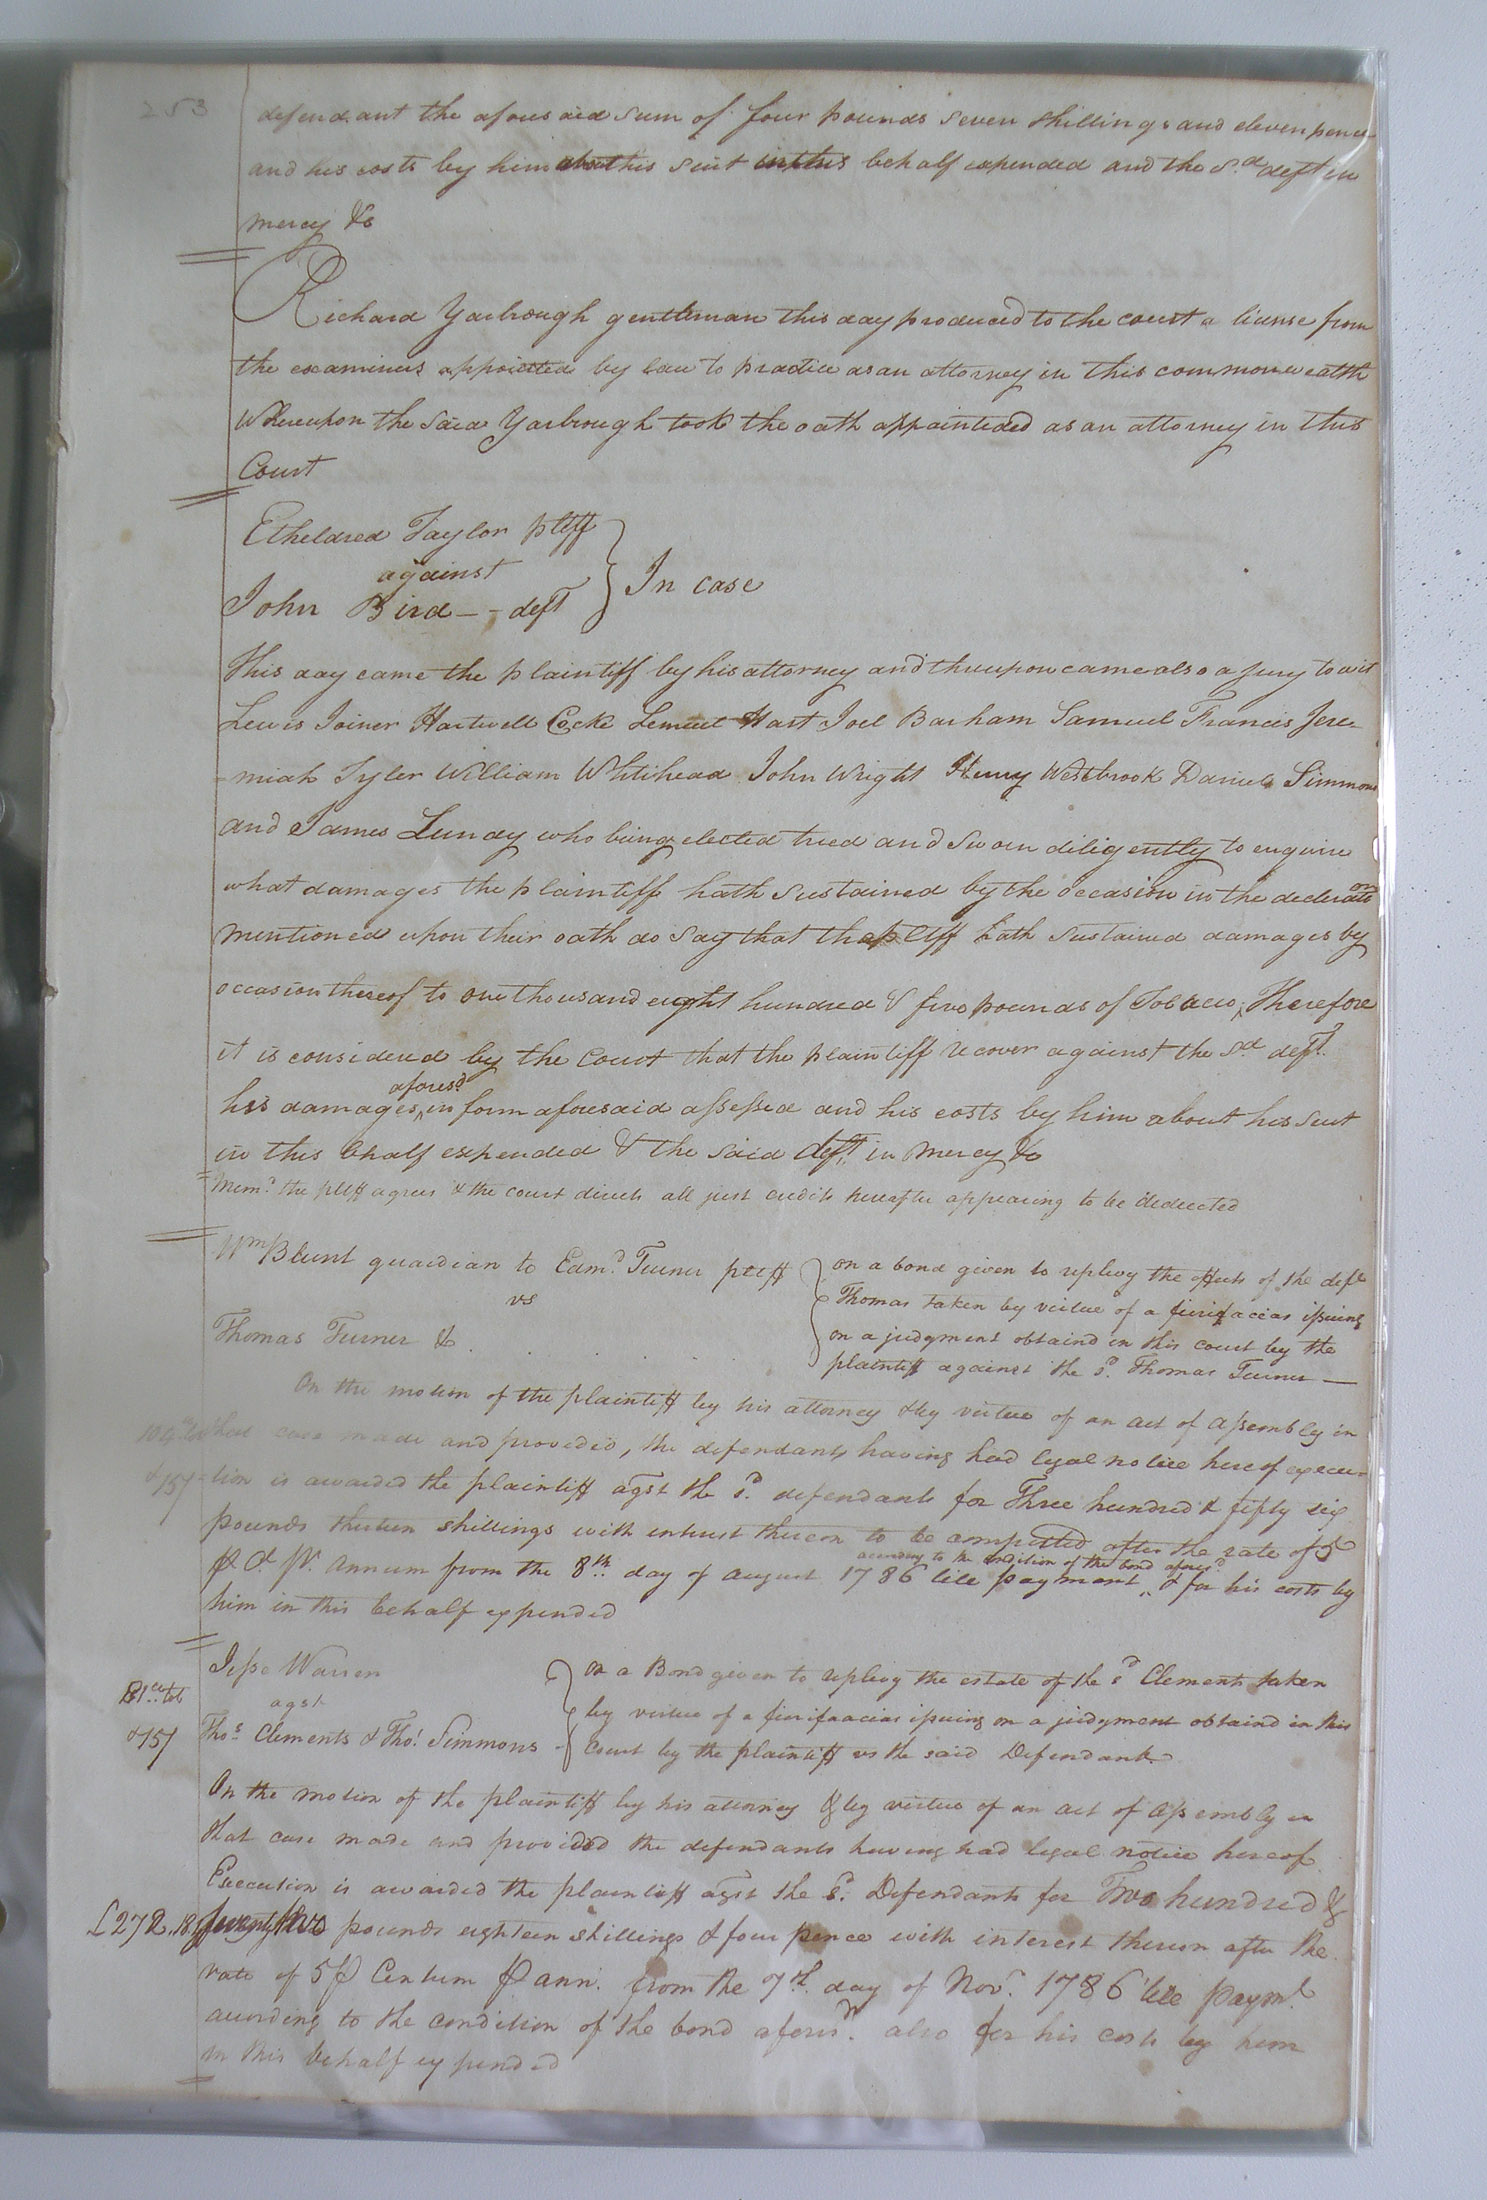 253
defendant the aforesaid sum of four pounds seven shillings and eleven pence
and his costs by him about his suit in this behalf expended and the sd deft in
mercy &c
Richard Yarbrough gentleman this day produced to the court a license from
the examiners appointed by law to practice as an attorney in this commonwealth
Whereupon the said Yarbrough took the oath appointeded as an attorney in this
Court
Etheldred Taylor pltff
against
John Bird - - deft
In case
This day came the plaintiff by his attorney and thereupon came also a jury to wit
Lewis Joiner Hartwell Cocke Lemuel Hart Joel Barham Samuel Francis Jere-
-miah Tyler William Whitehead John Wright Henry Westbrook Daniel Simmons
and James Lunday who being elected tried and sworn diligently to enquire
what damages the plaintiff hath sustained by the occasion in the declaration
mentioned upon their oath do say that the pltff hath sustained damages by
occasion thereof to one thousand eight hundred & five pounds of Tobacco, Therefore
it is considered by the Court that the plaintiff recover against the sd deft.
aforesd
his damages in form aforesaid assessed and his costs by him about his suit
in this behalf expended & the said deft. in mercy &c
Memo. the pltff agrees & the court directs all just credits hereafter appearing to be deducted
Wm Blunt guardian to Edmd Turner pltff
vs
Thomas Turner &c
on a bond given to replevy the effects of the deft
Thomas taken by virtue of a fierifacias issuing
on a judgment obtaind in this court by the
plaintiff against the sd. Thomas Turner —
On the motion of the plaintiff by his attorney & by virtue of an act of Assembly in
that case made and provided, the defendants having had legal notice hereof execu-
& 15/
-tion is awarded the plaintiff agst the sd. defendants for Three hundred & fifty six
pounds thirteen shillings with interest thereon to be computed after the rate of 5
according to the condition of the bond aforesd
P Ct Pr. annum from the 8th. day of august 1786 till payment & for his costs by
him in this behalf expended
Jesse Warren
agst
Thos Clements & Thos. Simmons
on a Bond given to replevy the estate of the sd Clements taken
by virtue of a fierifacias issuing on a judgment obtaind in this
Court by the plaintiff vs the said Defendant.
& 15/
On the motion of the plaintiff by his attorney & by virtue of an act of Assembly in
that case made and provided the defendants having had legal notice hereof
Execution is awarded the plaintiff agst the sd. Defendants for Two hundred &
£272.18.
seventy two pounds eighteen shillings & four pence with interest thereon after the
rate of 5 P Centum P ann. from the 7th. day of Novr. 1786 till paymt.
according to the condition of the bond aforesd. also for his costs by him
in this behalf expended